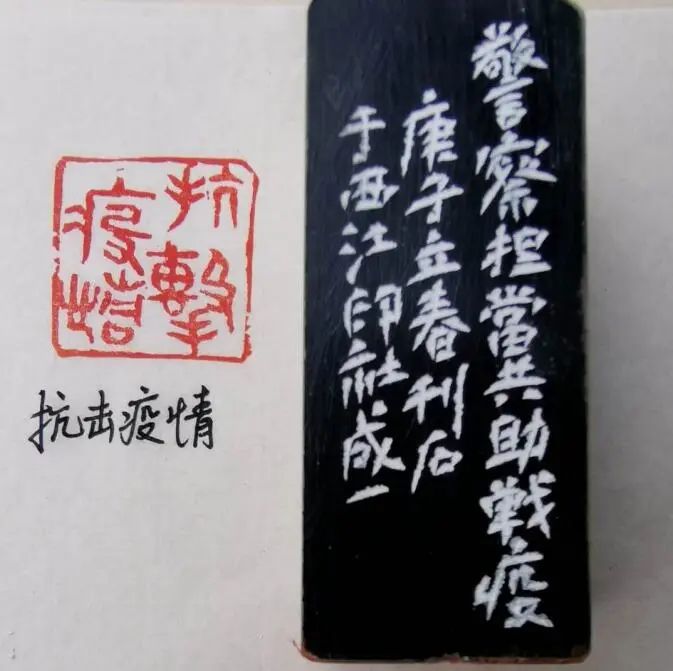 抗擊
疫情
抗击疫情
警察担當共助戰疫
庚子立春刊石
于西江印社成一